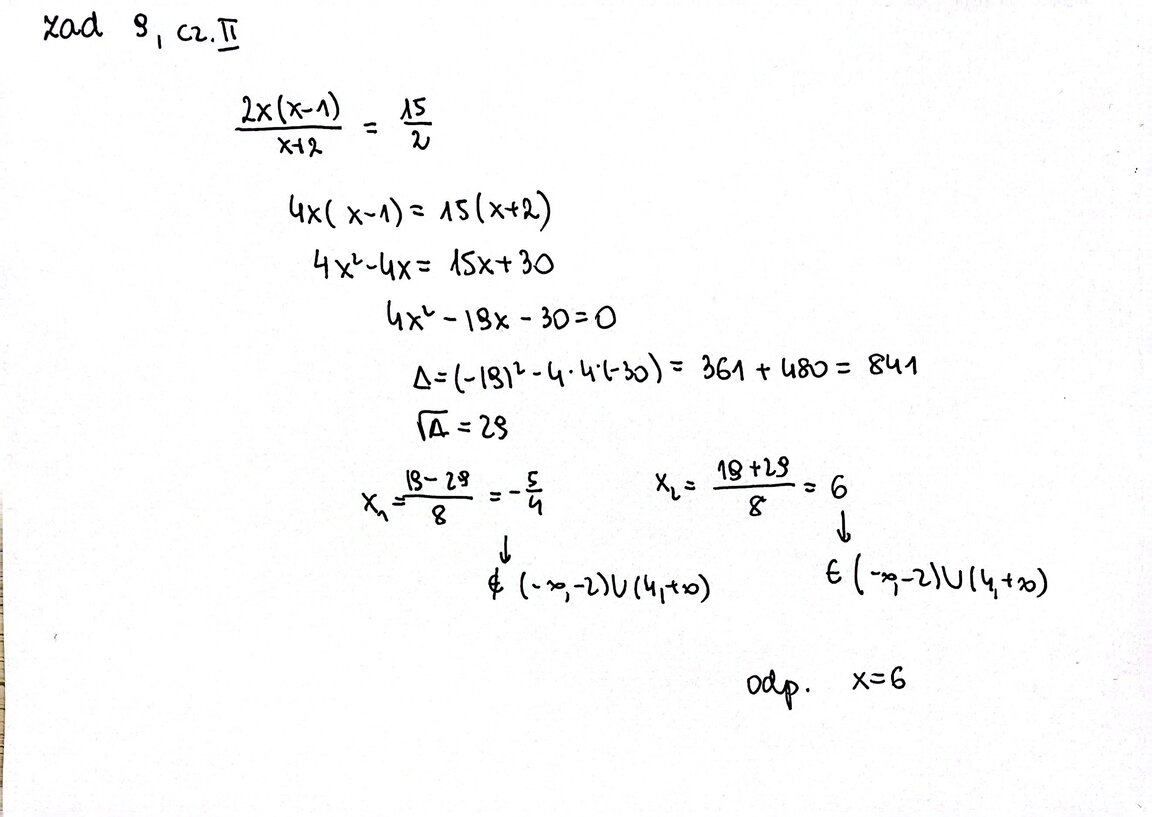 zad 9, cz. II
2x(x-1)/x+2 = 15/2
4x(x-1) = 15(x+2)
4x²-4x = 15x+30
4x² - 19x - 30 = 0
Δ = (-19)² - 4·4·(-30) = 361 + 480 = 841
√Δ = 29
x₁ = 19-29/8 = -5/4 x₂ = 19+29/8 = 6
↓ ↓
∉ (-∞,-2)∪(4,+∞) ∈ (-∞,-2)∪(4,+∞)
odp. x=6